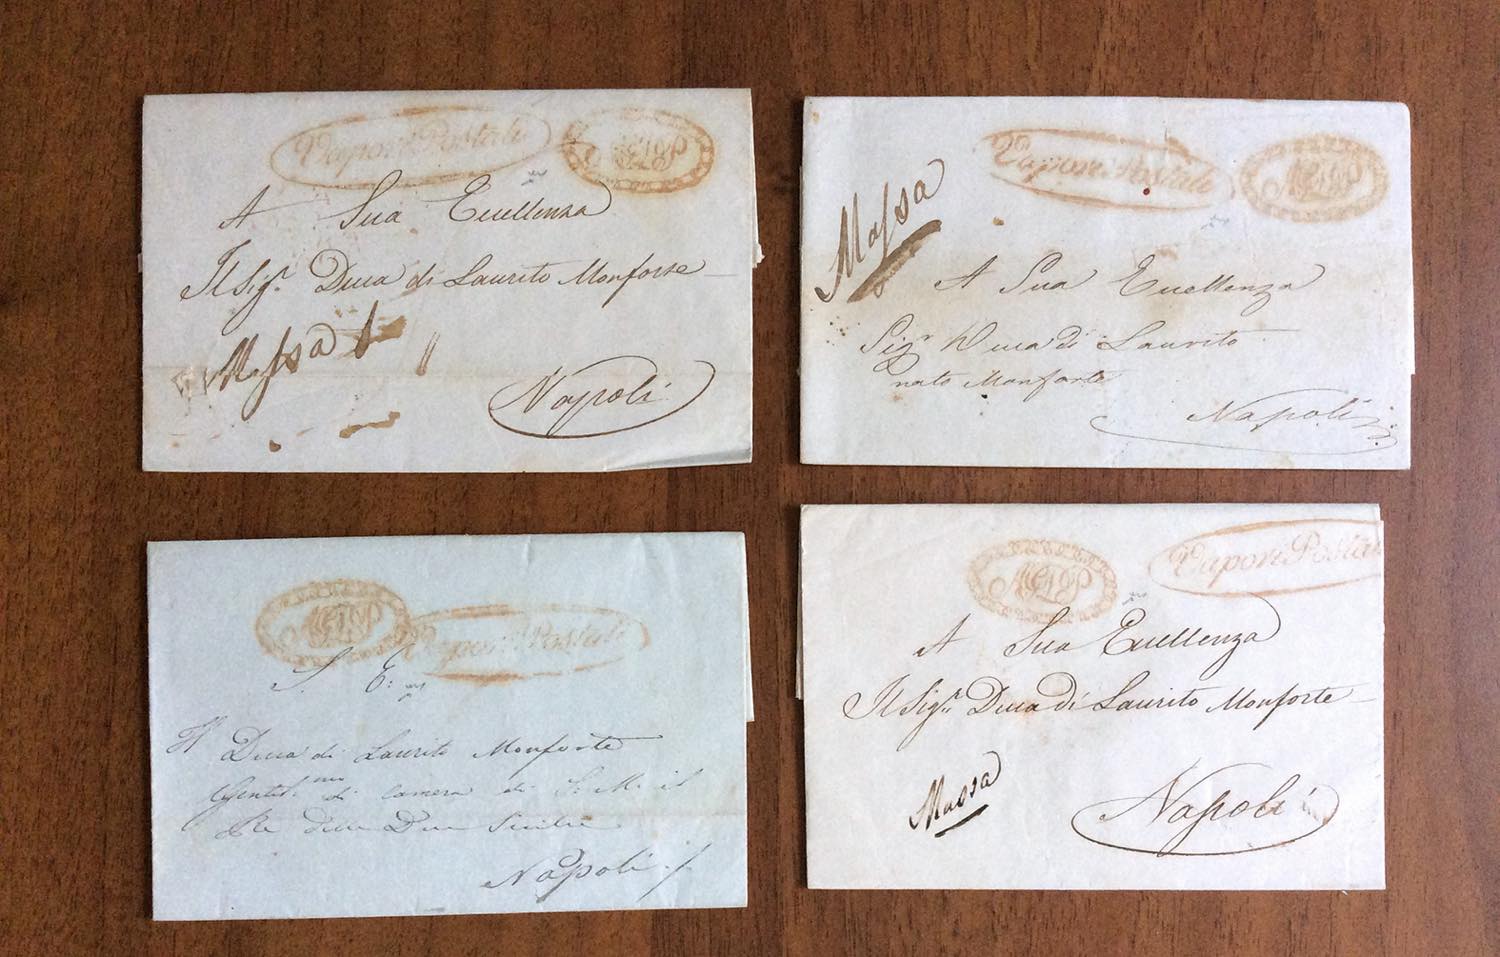 Vapori Postali
A Sua Eccellenza
Il Sigr. Duca di Laurito Monforte
Massa
Napoli
Vapori Postali
Massa
A Sua Eccellenza
Sigr Duca di Laurito
nato Monforte
Napoli
Vapori Postali
S. E:
Il Duca di Laurito Monforte
Gentil.mo di Camera di S. M. il
Re delle Due Sicilie
Napoli
Vapori Postali
A Sua Eccellenza
Il Sigr. Duca di Laurito Monforte
Massa
Napoli